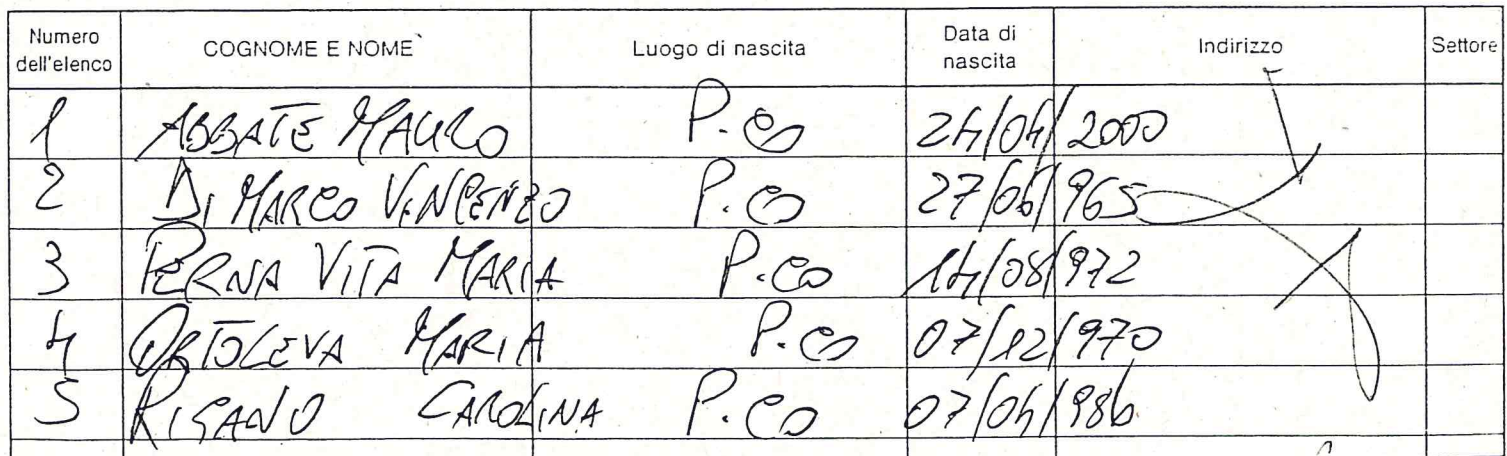 Numero dell'elenco COGNOME E NOME Luogo di nascita Data di nascita Indirizzo Settore
1 ABBATE MAURO P.co 24/04/2000
2 DI MARCO VINCENZO P.co 27/06/965
3 PERNA VITA MARIA P.co 14/08/972
4 ORTOLEVA MARIA P.co 07/12/970
5 RIGANO CAROLINA P.co 07/04/986